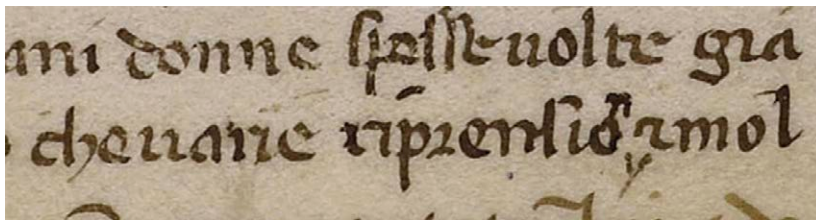 ani donne spesse uolte gia
che uarie riprensioⁿ ⁊ mol